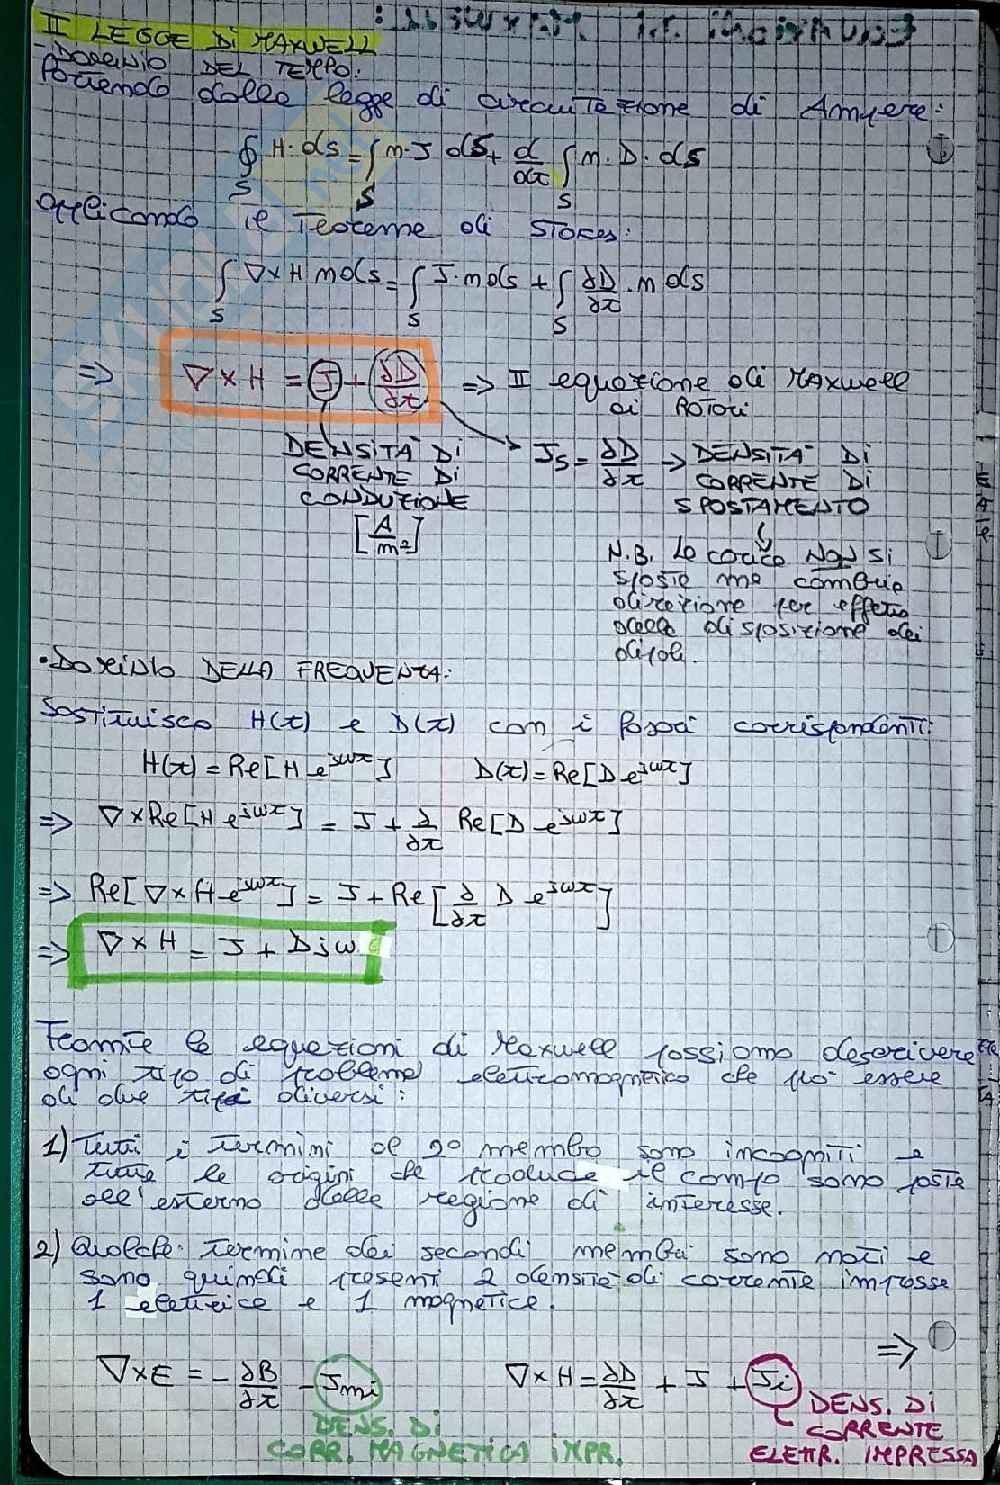 II LEGGE Di MAXWELL
-DOMINIO DEL TEMPO:
Partendo dalla legge di circuitazione di Ampere:
∮_S H·ds = ∫_S n·J dS + d/dt ∫_S n·D·ds
applicando il Teorema di STOKES:
∫_S ∇×H n ds = ∫_S J·n ds + ∫_S ∂D/∂t·n ds
=> ∇×H = J + ∂D/∂t => II equazione di MAXWELL
ai ROTORI
DENSITA' Di
CORRENTE Di
CONDUZIONE
[A/m²]
Js = ∂D/∂t → DENSITA' Di
CORRENTE Di
SPOSTAMENTO
N.B. Le carice NON SI
sposta ma cambia
direzione per effetto
della disposizione dei
dipoli.
•DOMINIO DELLA FREQUENZA:
Sostituisco H(t) e D(t) con i fasori corrispondenti:
H(t) = Re[H e^jωt] D(t) = Re[D e^jωt]
=> ∇×Re[H e^jωt] = J + ∂/∂t Re[D e^jωt]
=> Re[∇×H e^jωt] = J + Re[∂/∂t D e^jωt]
=> ∇×H = J + Djω
Tramite le equazioni di Maxwell possiamo descrivere
ogni tipo di problema elettromagnetico che può essere
di due tipi diversi:
1) Tutti i termini al 2º membro sono incogniti e
tutte le origini che produce il campo sono poste
all'esterno della regione di interesse.
2) Qualche termine dei secondi membri sono noti e
sono quindi presenti 2 densità di corrente impresse
1 elettrica e 1 magnetica.
=>
∇×E = -∂B/∂t - Jmi ∇×H = ∂D/∂t + J + Ji
DENS. Di
CORR. MAGNETICA iMPR.
DENS. Di
CORRENTE
ELETTR. IMPRESSA